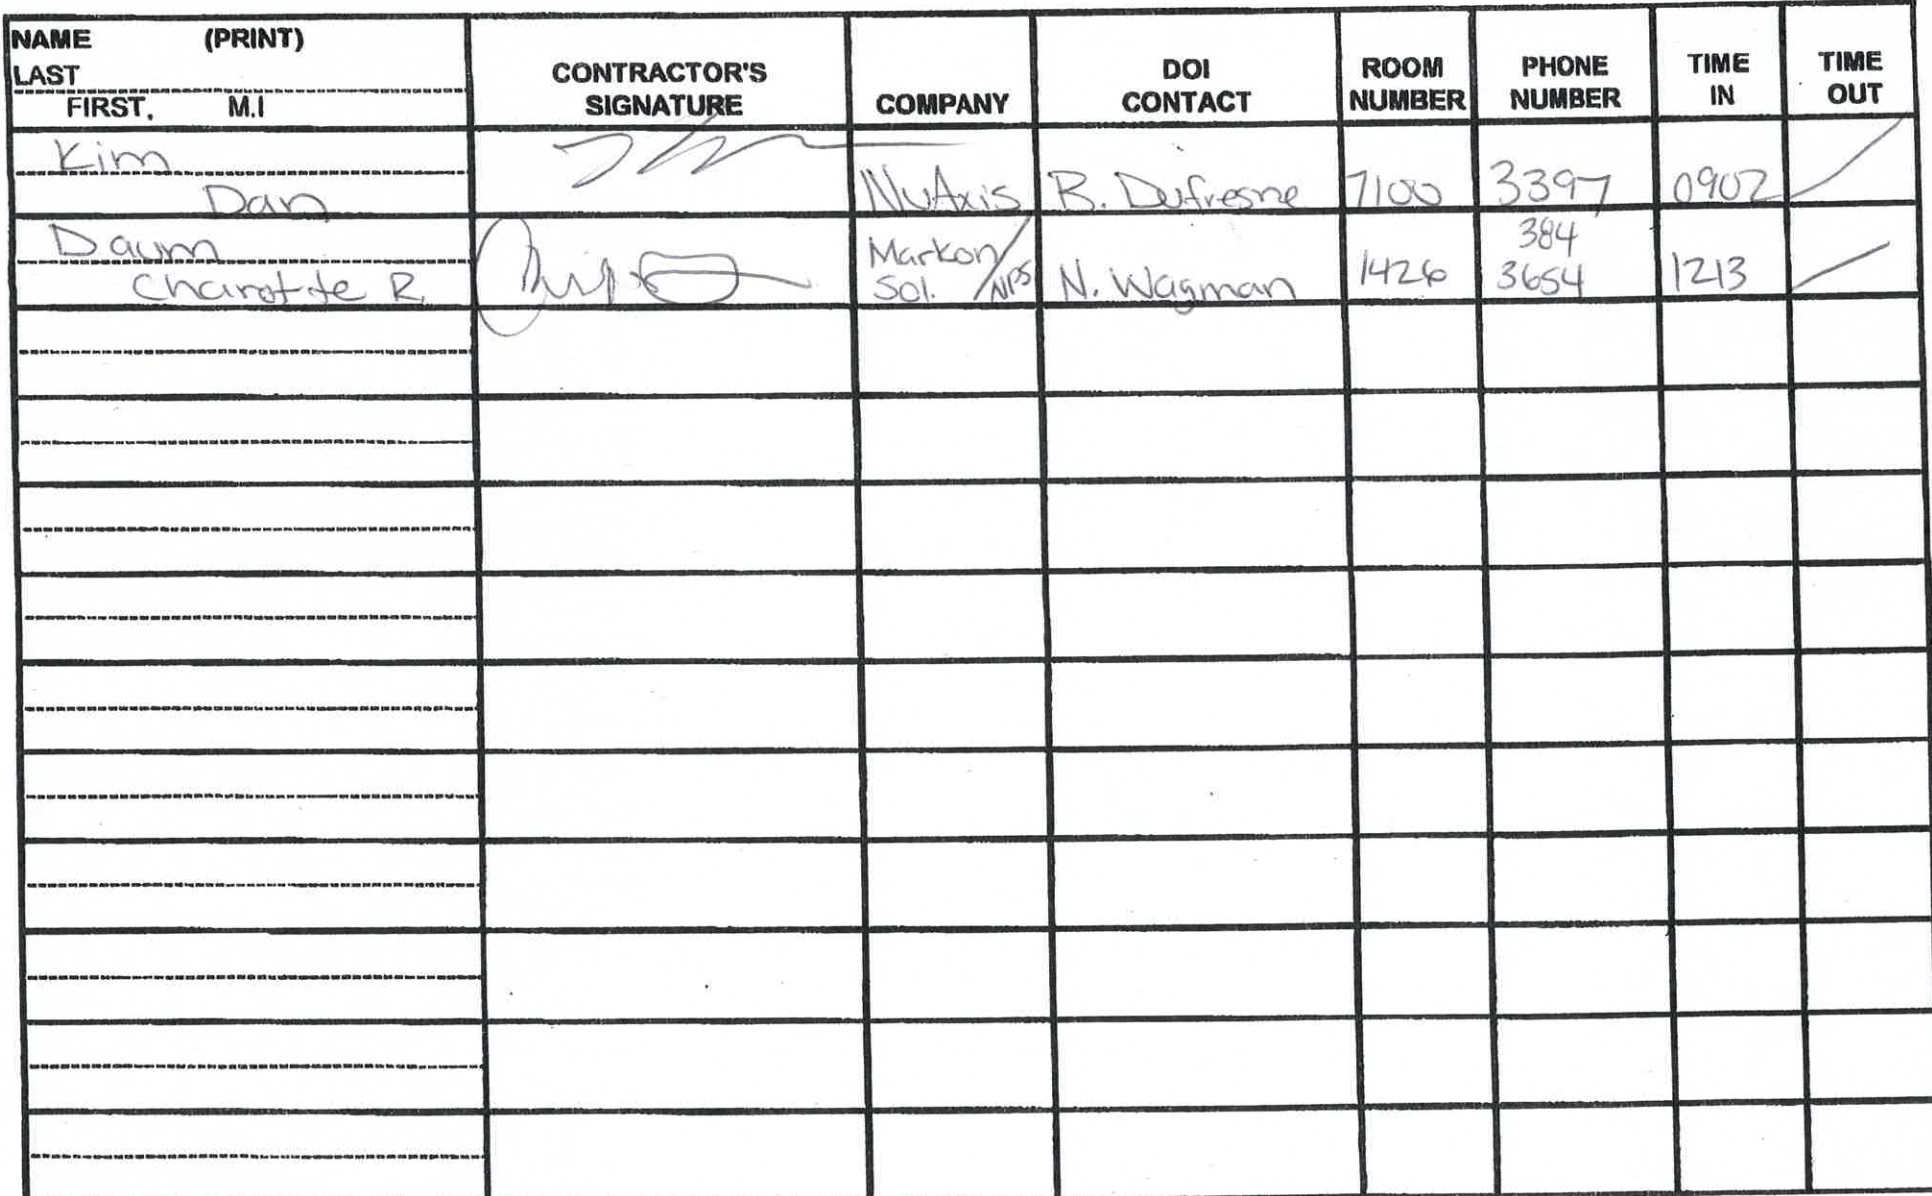 NAME (PRINT)
LAST
FIRST, M.I
CONTRACTOR'S
SIGNATURE
COMPANY
DOI
CONTACT
ROOM
NUMBER
PHONE
NUMBER
TIME
IN
TIME
OUT
Kim
Dan
NuAxis
B. Dufresne
7100
3397
0902
Daum
Charotte R.
Markon/
Sol. /NPS
N. Wagman
1426
384
3654
1213